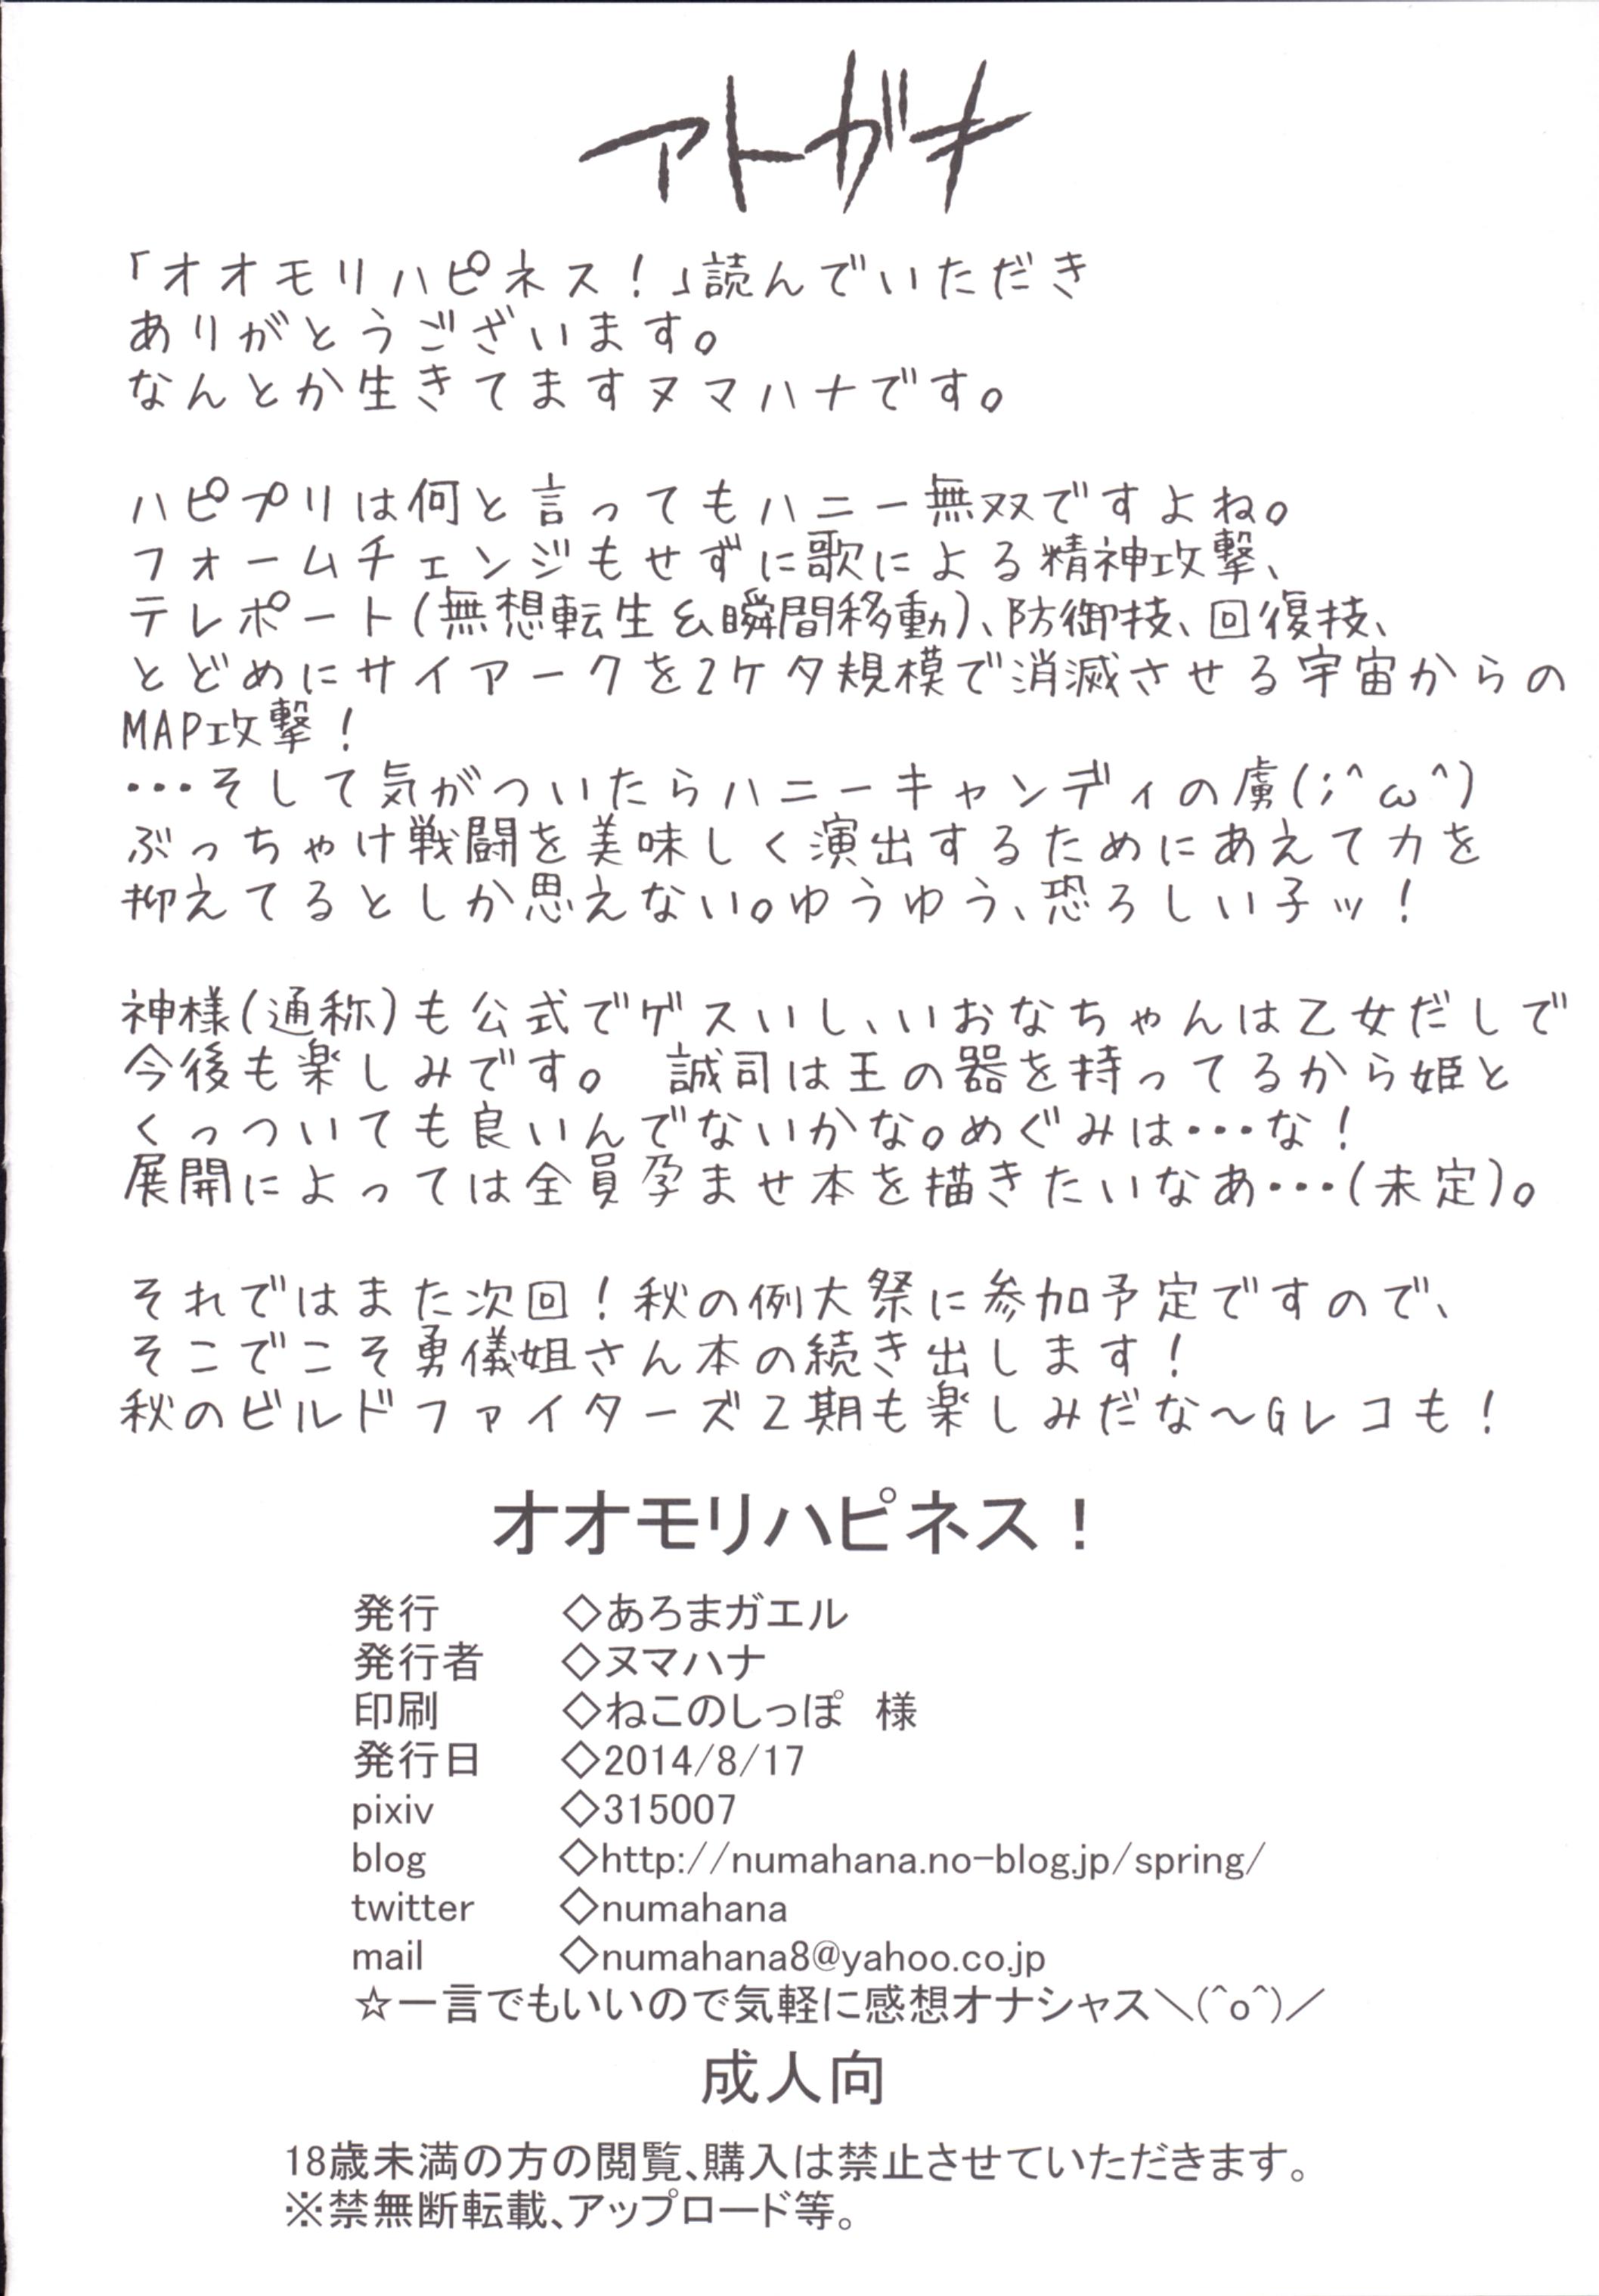 アトガキ
「オオモリハピネス!」読んでいただき
ありがとうございます。
なんとか生きてますヌマハナです。
ハピプリは何と言ってもハニー無双ですよね。
フォームチェンジもせずに歌による精神攻撃、
テレポート(無想転生&瞬間移動)、防御技、回復技、
とどめにサイアークを2ケタ規模で消滅させる宇宙からの
MAP攻撃!
・・・そして気がついたらハニーキャンディの虜(;^ω^)
ぶっちゃけ戦闘を美味しく演出するためにあえて力を
抑えてるとしか思えない。ゆうゆう、恐ろしい子ッ!
神様(通称)も公式でゲスいし、いおなちゃんは乙女だしで
今後も楽しみです。 誠司は王の器を持ってるから姫と
くっついても良いんでないかな。めぐみは・・・な!
展開によっては全員孕ませ本を描きたいなあ・・・(未定)。
それではまた次回!秋の例大祭に参加予定ですので、
そこでこそ勇儀姐さん本の続き出します!
秋のビルドファイターズ2期も楽しみだな〜Gレコも!
オオモリハピネス!
発行 ◇あろまガエル
発行者 ◇ヌマハナ
印刷 ◇ねこのしっぽ 様
発行日 ◇2014/8/17
pixiv ◇315007
blog ◇http://numahana.no-blog.jp/spring/
twitter ◇numahana
mail ◇numahana8@yahoo.co.jp
☆一言でもいいので気軽に感想オナシャス＼(^o^)／
成人向
18歳未満の方の閲覧、購入は禁止させていただきます。
※禁無断転載、アップロード等。